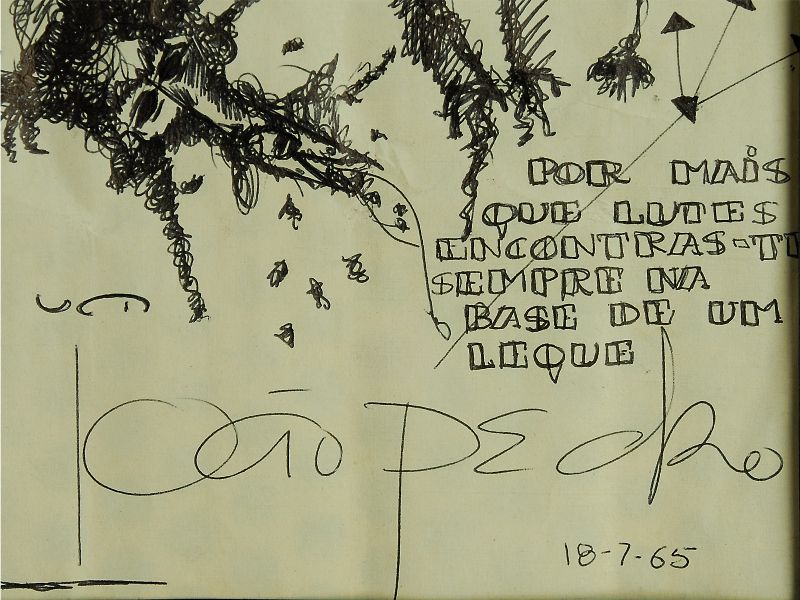 POR MAIS
QUE LUTES
ENCONTRAS-TE
SEMPRE NA
BASE DE UM
LEQUE
João Pedro
18-7-65